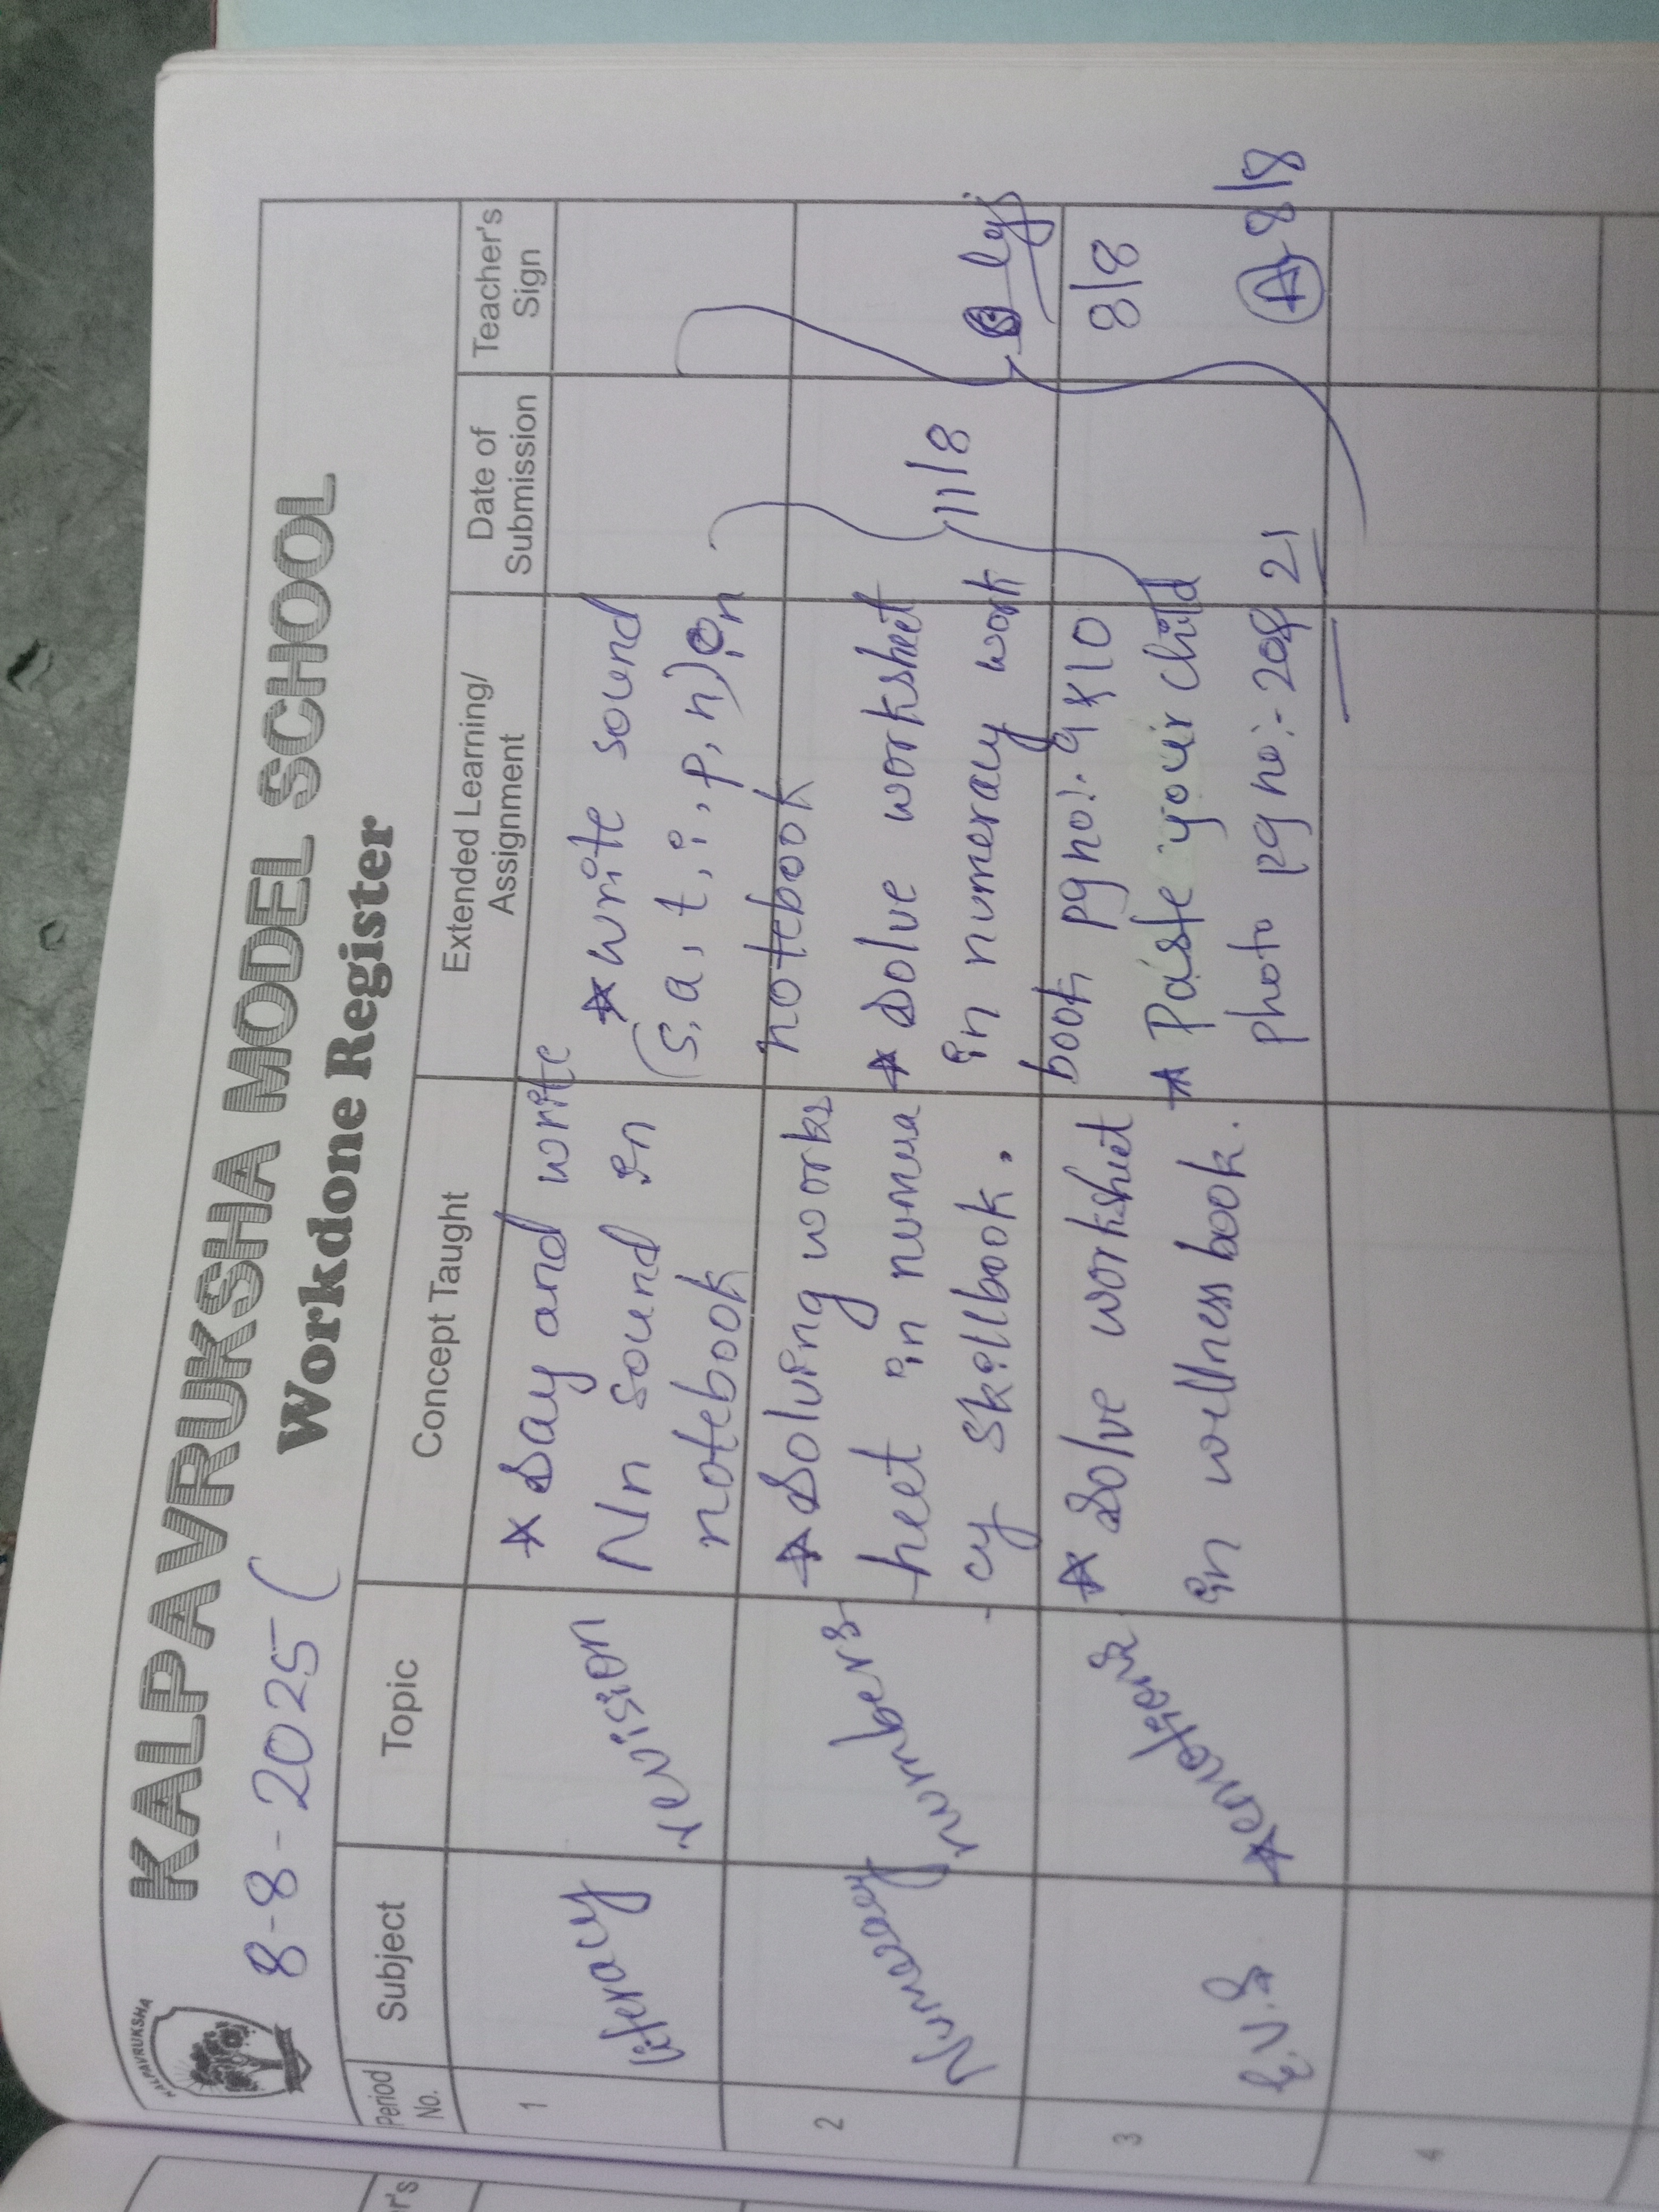 KALPAVRUKSHA
KALPAVRUKSHA MODEL SCHOOL
8-8-2025 (
Workdone Register
Period No.
Subject
Topic
Concept Taught
Extended Learning/
Assignment
Date of
Submission
Teacher's
Sign
1
literacy
revision
* Say and write
Nn sound in
notebook
* write sound
(s, a, t, i, p, n) in
notebook
2
Numeracy
numbers
* Solving works
heet in numua
cy skillbook.
* Solve worksheet
in numeracy work
book pg no:- 9 & 10
11/8
8/8
3
E.V.S
* emotions
* Solve worksheet
in wellness book.
* Paste your child
photo pg no:- 20 & 21
8/8
4